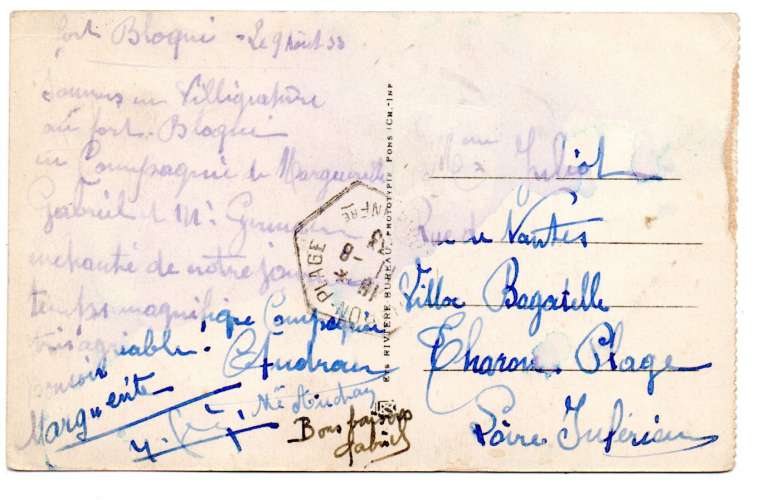 fort Bloqué - Le 9 Août 33
Sommes en Villégiature
au fort-Bloqué
en Compagnie de Marguerite
Gabriel et Mr Germain
enchanté de notre
temps magnifique Compagnie
très agréable. C Audran
bonsoir
Marguerite
Me Audran
Bons baisers
Gabriel
ETS RIVIÈRE BUREAU, PROTOTYPIE PONS (CH.-INF
PLAGE
-8
INFRE
Mme Juliot
Rue de Nantes
Villa Bagatelle
Tharon Plage
Loire Inférieure